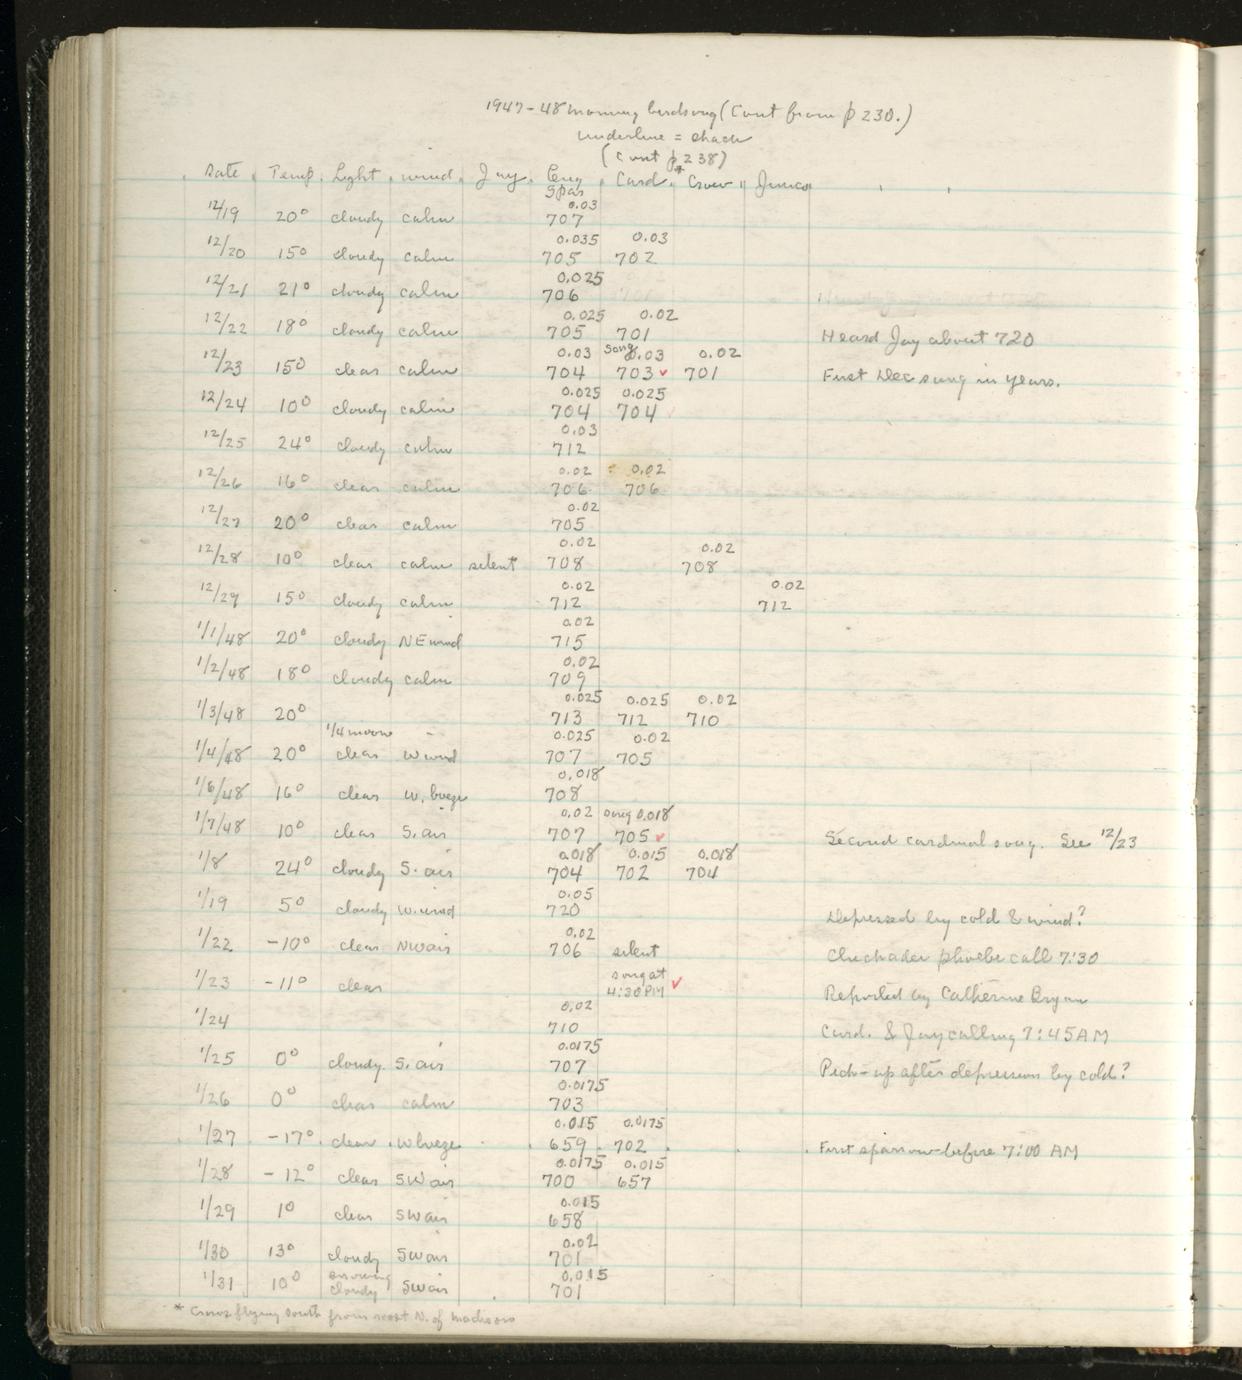 1947-48 morning birdsong (Cont from p 230.)
underline = check
(Cont p 238)
Date Temp. Light wind Jay Eng Spar Card. Crow* Junco
0.03
12/19 20° cloudy calm 707
0.035 0.03
12/20 15° cloudy calm 705 702
0.025
12/21 21° cloudy calm 706
0.025 0.02
12/22 18° cloudy calm 705 701 Heard Jay about 720
0.03 song 0.03 0.02
12/23 15° clear calm 704 703 ✓ 701 First Dec song in years.
0.025 0.025
12/24 10° cloudy calm 704 704
0.03
12/25 24° cloudy calm 712
0.02 0.02
12/26 16° clear calm 706 706
0.02
12/27 20° clear calm 705
0.02 0.02
12/28 10° clear calm silent 708 708
0.02 0.02
12/29 15° cloudy calm 712 712
0.02
1/1/48 20° cloudy NE wind 715
0.02
1/2/48 18° cloudy calm 709
0.025 0.025 0.02
1/3/48 20° 713 712 710
1/4 moon 0.025 0.02
1/4/48 20° clear W wind 707 705
0.018
1/6/48 16° clear W. breeze 708
0.02 song 0.018
1/7/48 10° clear S. air 707 705 ✓ Second cardinal song. See 12/23
0.018 0.015 0.018
1/8 24° cloudy S. air 704 702 704
0.05
1/19 5° cloudy W. wind 720 Depressed by cold & wind?
0.02
1/22 -10° clear NW air 706 silent Chickadee phoebe call 7:30
song at
1/23 -11° clear 4:30 PM ✓ Reported by Catherine Bryan
0.02
1/24 710 Card. & Jay calling 7:45 AM
0.0175
1/25 0° cloudy. S. air 707 Pick-up after depression by cold?
0.0175
1/26 0° clear calm 703
0.015 0.0175
1/27 -17° clear W breeze 659 702 First sparrow before 7:00 AM
0.0175 0.015
1/28 -12° clear SW air 700 657
0.015
1/29 1° clear SW air 658
0.02
1/30 13° cloudy SW air 701
snowing 0.015
1/31 10° cloudy SW air 701
* Crows flying south from roost N. of Madison